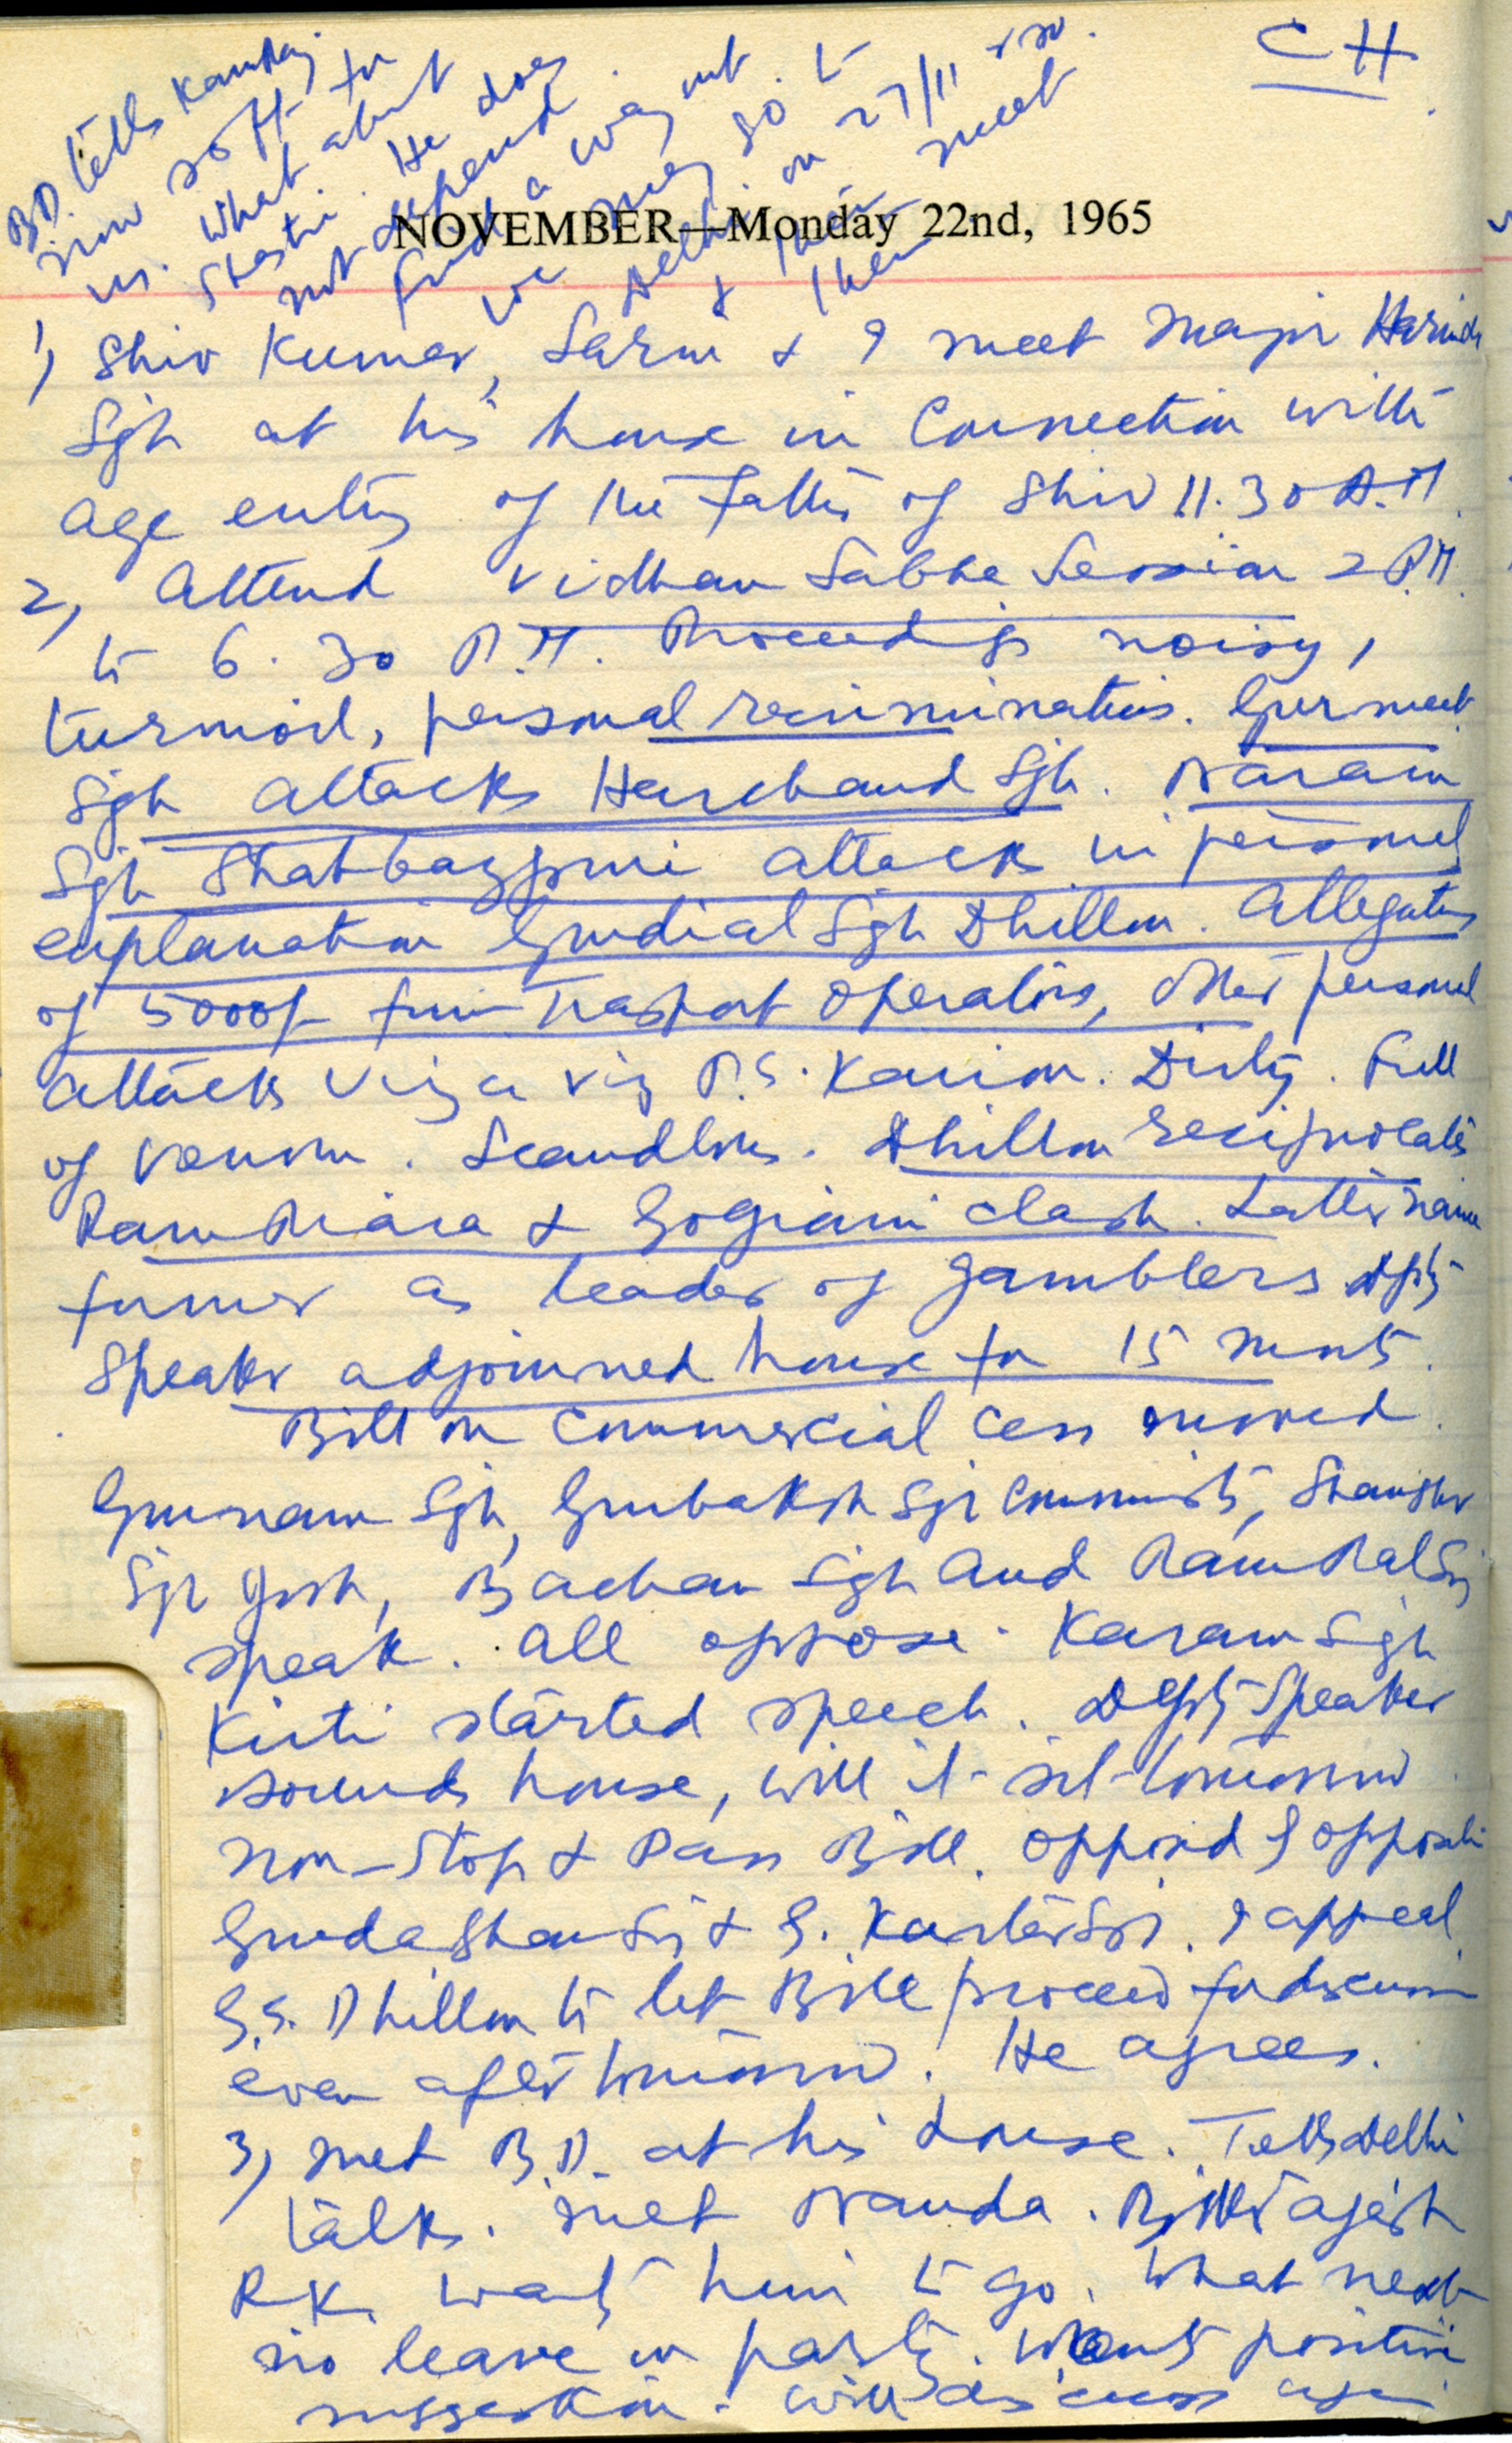 CH
NOVEMBER—Monday 22nd, 1965
B.D. tells Kamraj
now soft for
us. What about
Shastri. He does
not depend.
Find a way out
We may go to
Delhi on 27/11 or so.
& then meet
them
1) Shiv Kumar, Sarin & I meet Major Harinder
Sgh at his house in Connection with
age entry of the father of Shiv 11.30 A.M.
2) Attend Vidhan Sabha Session 2 P.M.
to 6.30 P.M. Proceedings noisy,
turmoil, personal recriminations. Gurmeet
Sgh attacks Harchand Sgh. Narain
Sgh Shahbazpuri attack in personal
explanation Gurdial Sgh Dhillon. Allegations
of 5000/- from Trasport operators, other personal
attacks viz a viz P.S. Kairon. Dirty. Full
of venom. Scandlous. Dhillon reciprocates
Ram Piara & Gogiani clash. Latter name
former as leader of gamblers Dpty
Speaker adjourned house for 15 mnts.
Bill on Commercial Cess moved.
Gurnam Sgh, Gurbaksh Sgh Communist, Shamsher
Sgh Josh, Bachan Sgh and Ram Pal Sgh
speak. All oppose. Karam Sgh
Kirti started speech. Dpty Speaker
sounds house, will it sit tomorrow
non-stop & Pass Bill. Opposed I oppose
Gurdarshan Sgh & S. Kartar Sgh. I appeal
G.S. Dhillon to let Bill proceed for discussion
even after tomorrow. He agrees.
3) Met B.D. at his house. Tells Delhi
talk. Met Nanda. Bitter agst
R.K. wants him to go. What next
no leave in party. Wants positive
suggestion. Will discuss again